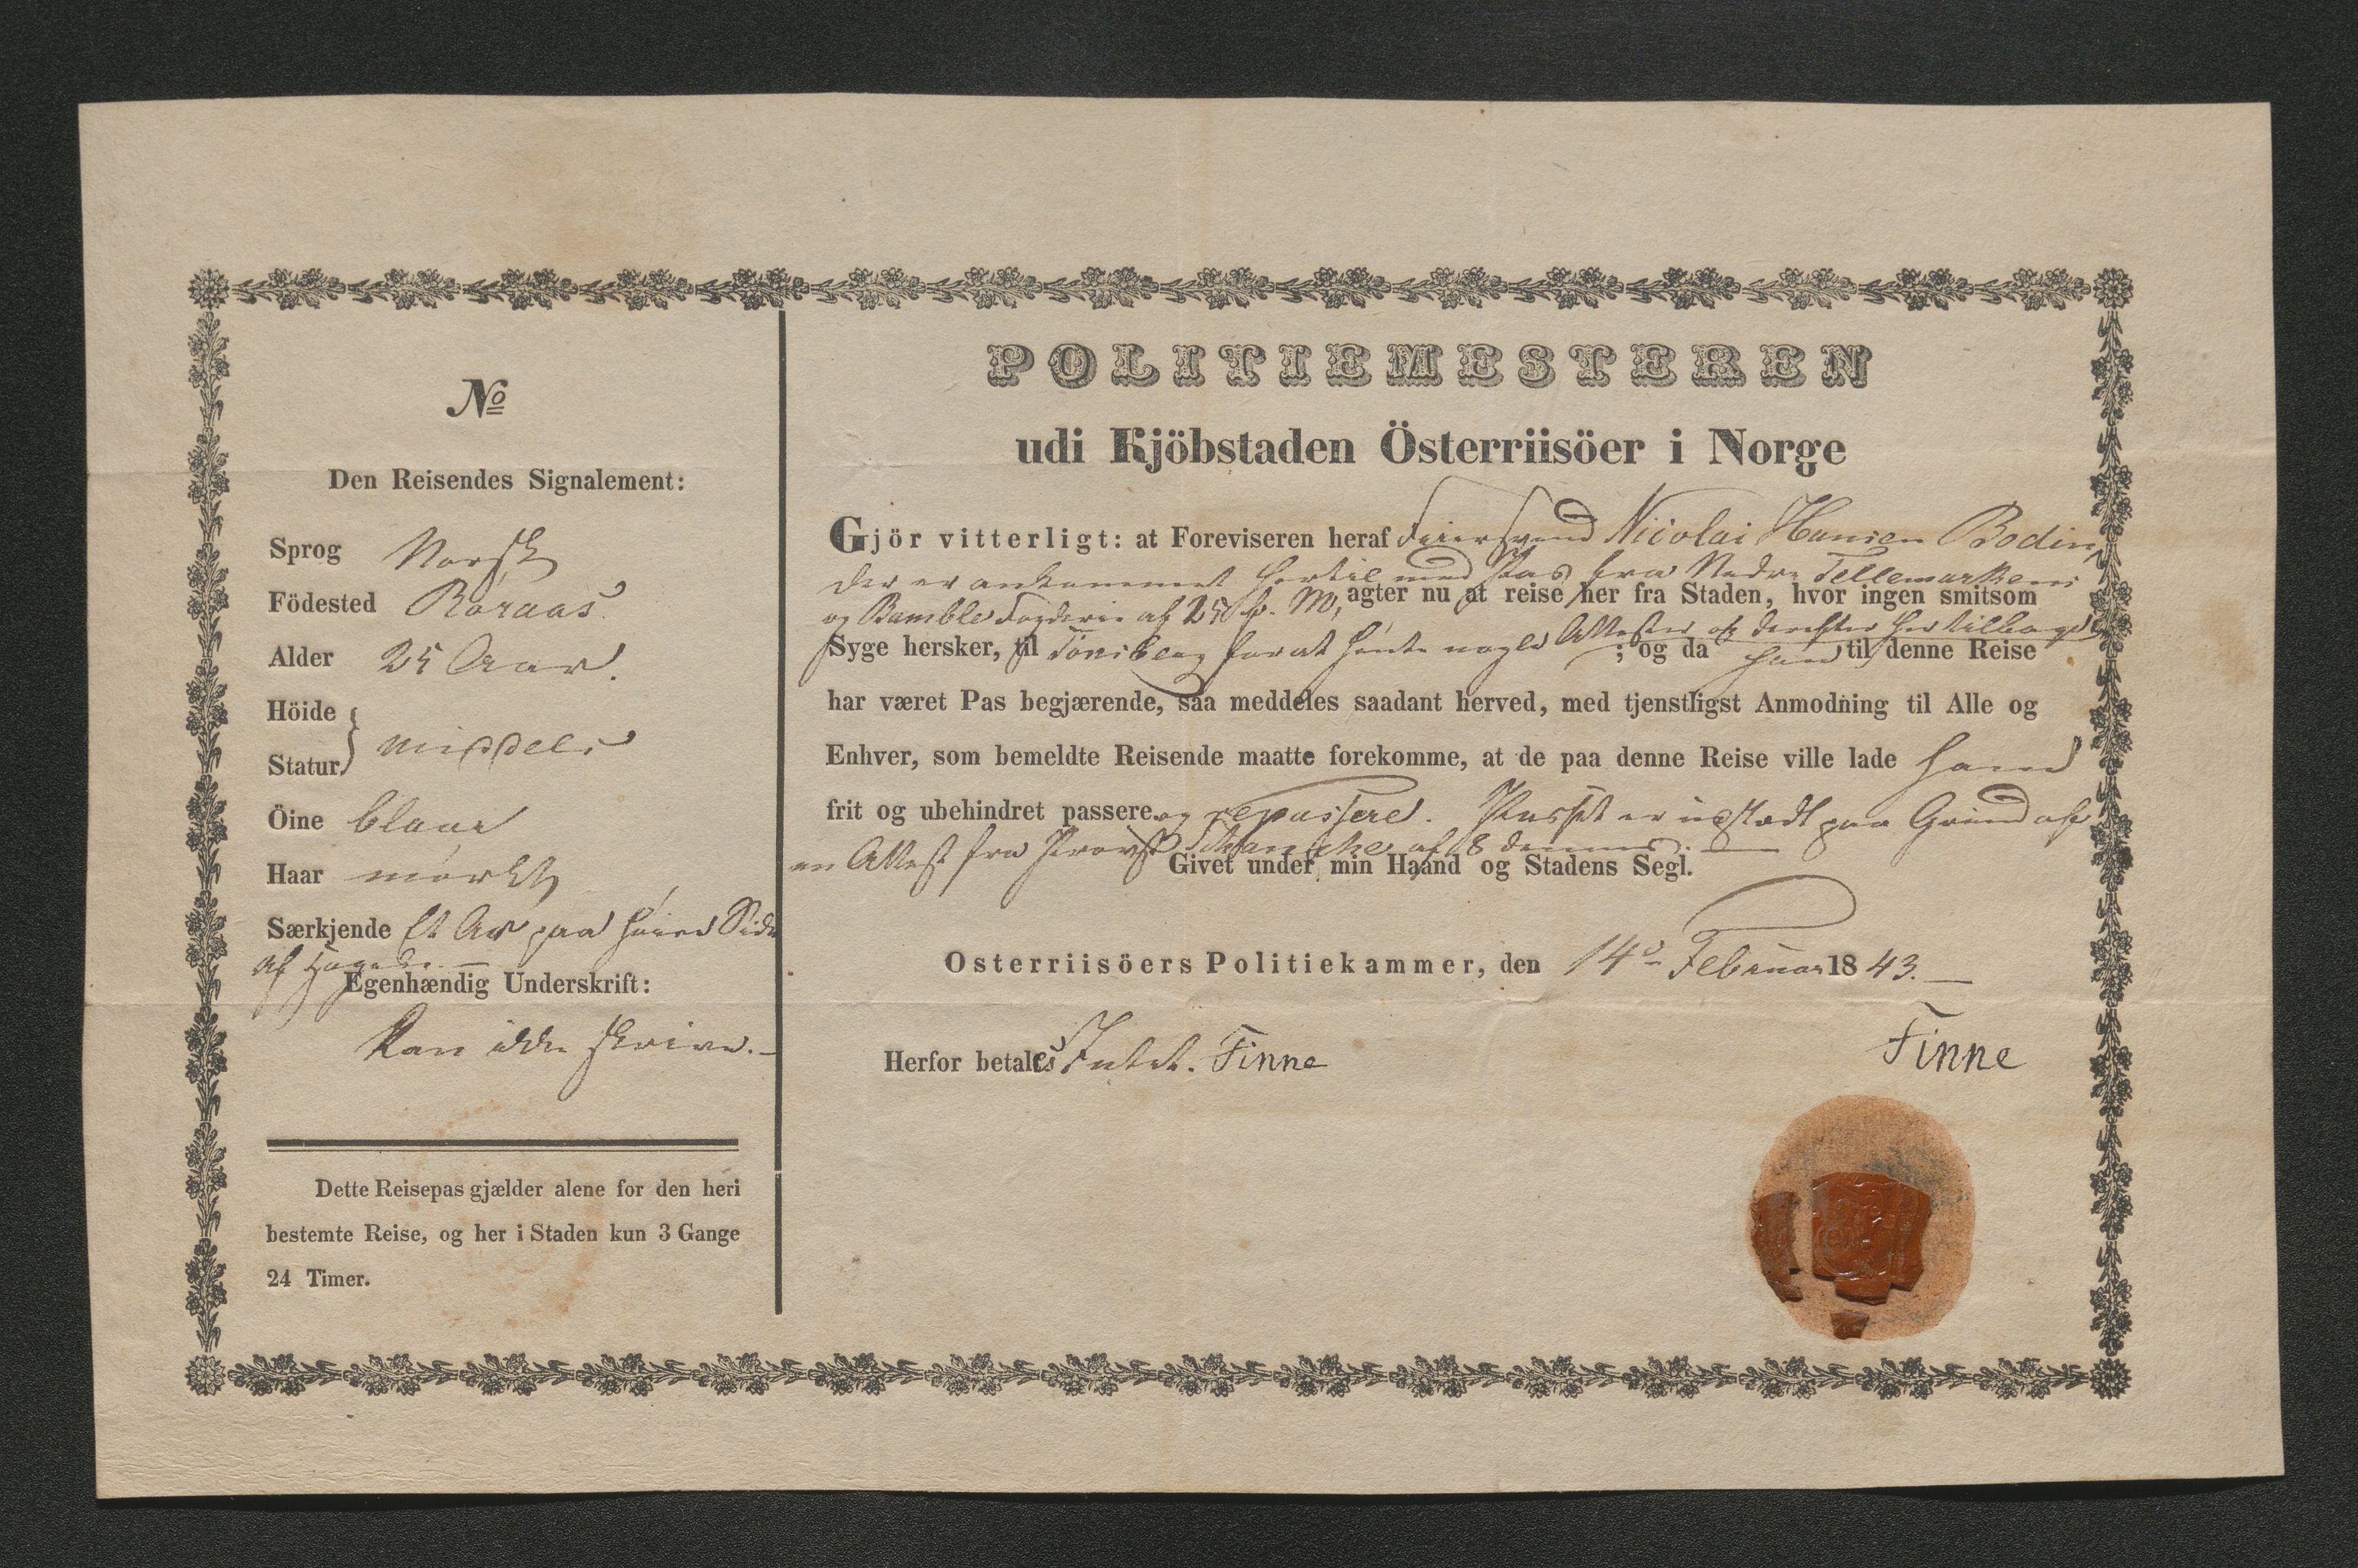 No
Den Reisendes Signalement:
Sprog Norsk
Födested Röraas.
Alder 25 Aar.
Höide
Statur } middels
Öine blaae
Haar mørkt
Særkjende Et Ar paa høire Side
af Hagen. —
Egenhændig Underskrift:
Kan ikke skrive. —
Dette Reisepas gjælder alene for den heri
bestemte Reise, og her i Staden kun 3 Gange
24 Timer.
POLITIEMESTEREN
udi Kjöbstaden Österriisöer i Norge
Gjör vitterligt: at Foreviseren heraf Feiersvend Nicolai Hansen Bodin,
der er ankommet hertil med Pas fra Nedre Tellemarkens
og Bamble Fogderie af 25 f. M., agter nu at reise her fra Staden, hvor ingen smitsom
Syge hersker, til Tönsberg for at hente nogle Attester og derefter her tilbage
; og da han til denne Reise
har været Pas begjærende, saa meddeles saadant herved, med tjenstligst Anmodning til Alle og
Enhver, som bemeldte Reisende maatte forekomme, at de paa denne Reise ville lade ham
frit og ubehindret passere og repassere. Passet er udstædt paa Grund af
en Attest fra Provst Schanche af 8 dennes. —
Givet under min Haand og Stadens Segl.
Osterriisöers Politiekammer, den 14de Februar 1843. —
Finne
Herfor betales Intet. Finne